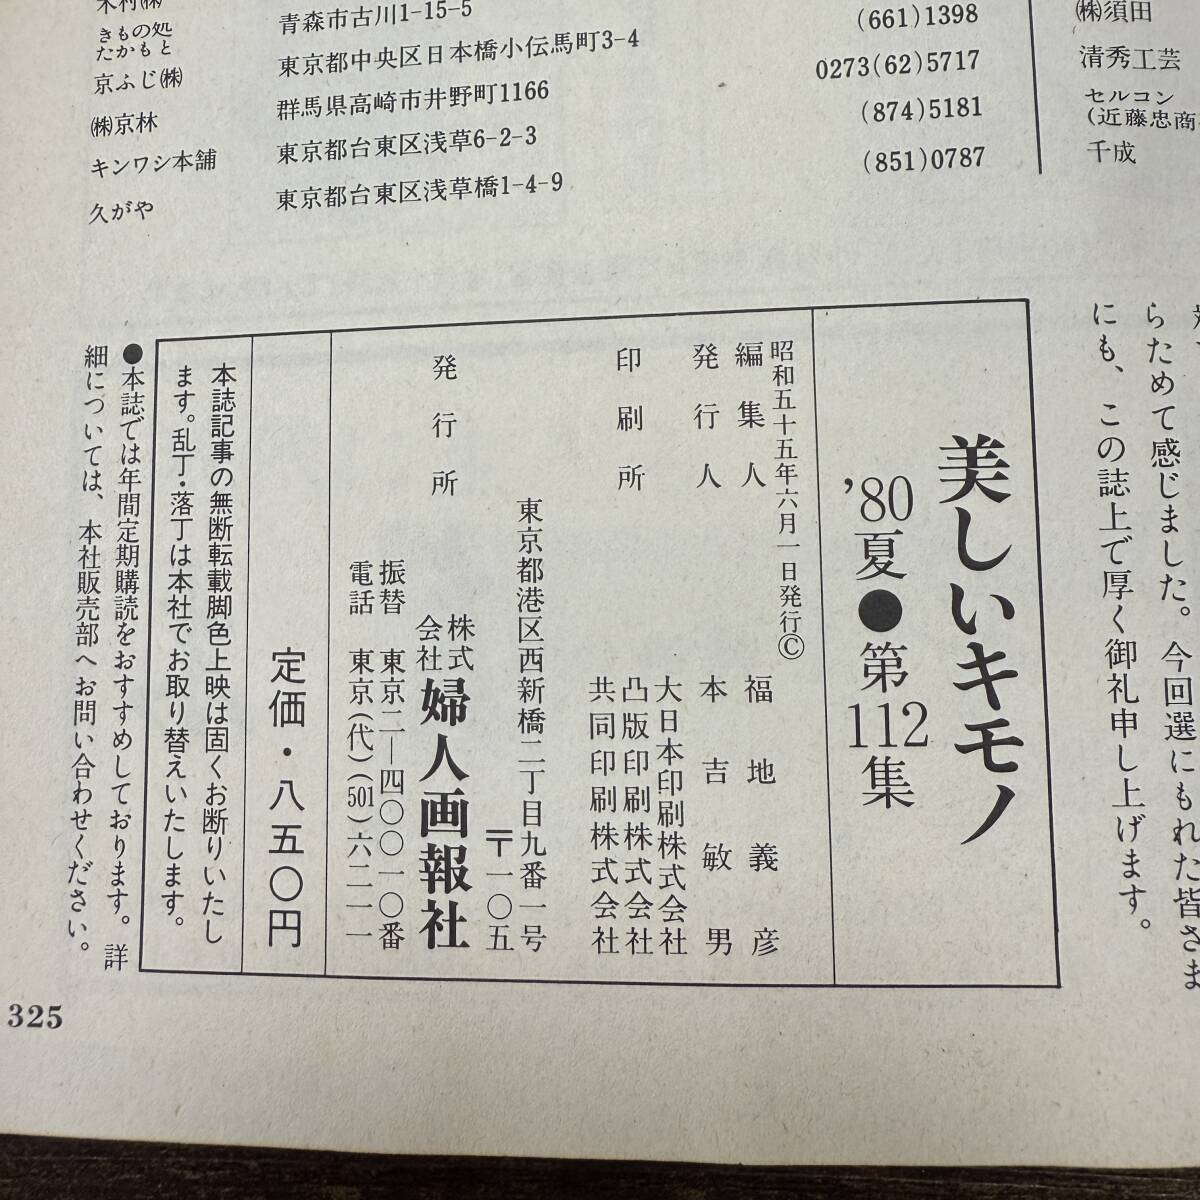 木村㈱
きもの処
たかもと
京ふじ㈱
㈱京林
キンワシ本舗
久がや
青森市古川1-15-5
東京都中央区日本橋小伝馬町3-4
群馬県高崎市井野町1166
東京都台東区浅草6-2-3
東京都台東区浅草橋1-4-9
(661)1398
0273(62)5717
(874)5181
(851)0787
㈱須田
清秀工芸
セルコン
(近藤忠商
千成
らためて感じました。今回選にもれた皆さま
にも、この誌上で厚く御礼申し上げます。
美しいキモノ
’80夏●第112集
昭和五十五年六月一日発行©
編集人 福地義彦
発行人 本吉敏男
印刷所 大日本印刷株式会社
凸版印刷株式会社
共同印刷株式会社
東京都港区西新橋二丁目九番一号
〒一〇五
発行所 株式会社 婦人画報社
振替 東京二―四〇〇一〇番
電話 東京(代)(501)六二一一
定価・八五〇円
本誌記事の無断転載脚色上映は固くお断りいたし
ます。乱丁・落丁は本社でお取り替えいたします。
●本誌では年間定期購読をおすすめしております。詳
細については、本社販売部へお問い合わせください。
325